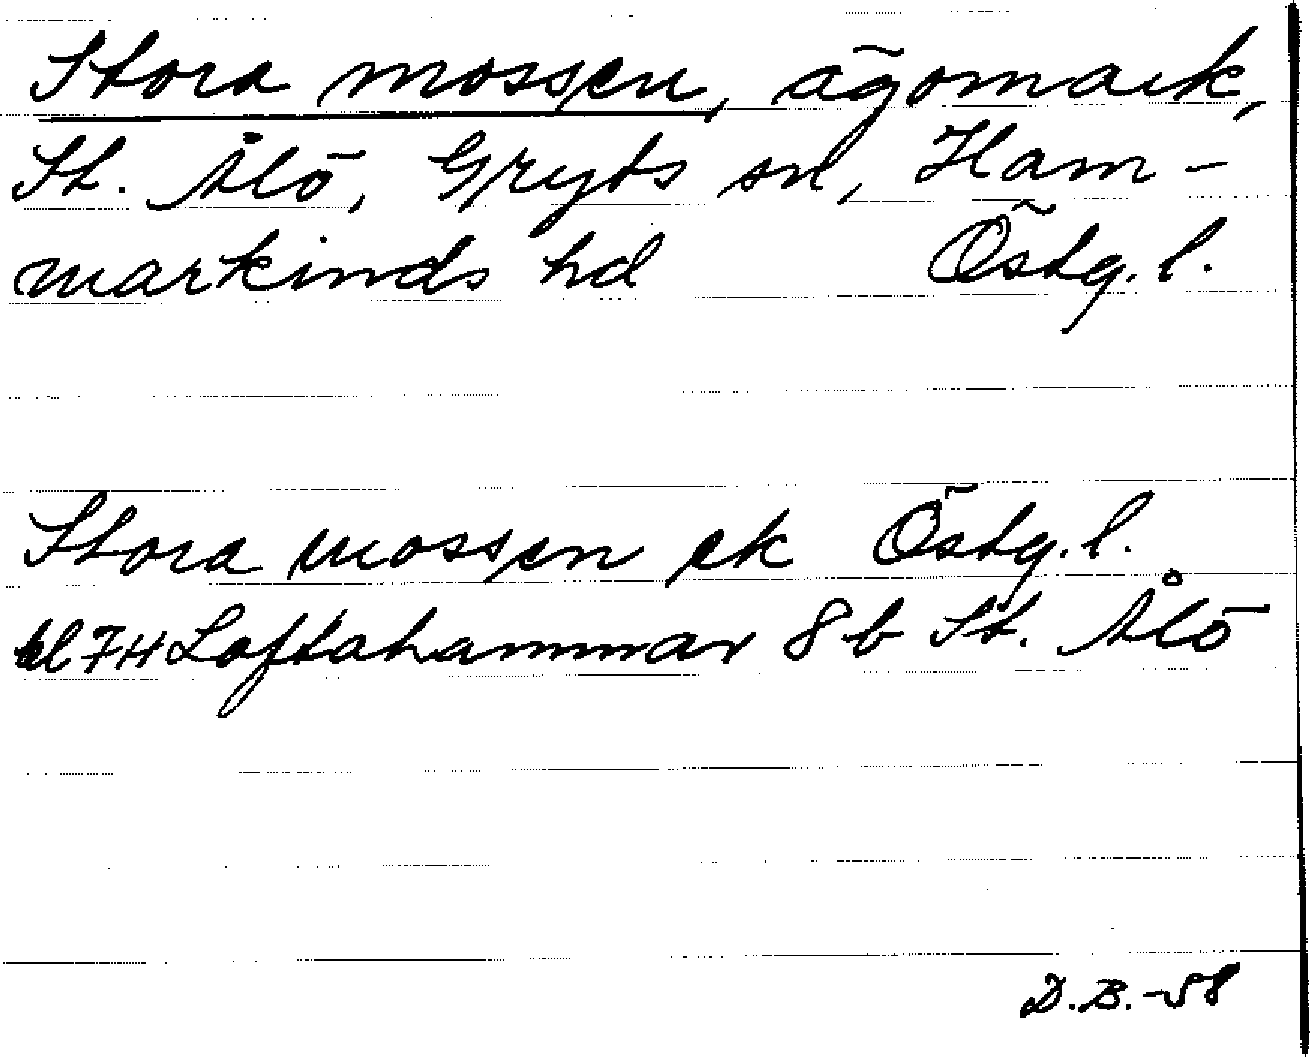 Stora mossen, ägomark,
St. Ålö, Gryts sn, Ham-
markinds hd Östg. l.
Stora mossen ek Östg. l.
bl 7H Loftahammar 8 b St. Ålö
D.B.-58